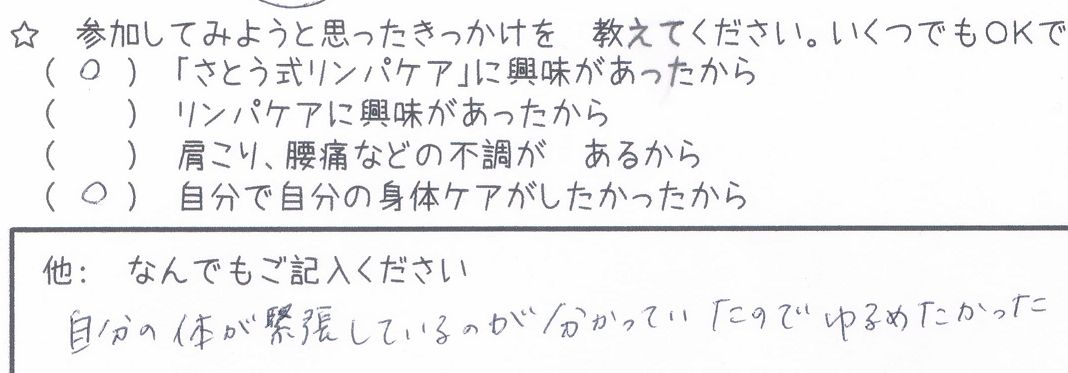 ☆ 参加してみようと思ったきっかけを 教えてください。いくつでもOKで
( ○ ) 「さとう式リンパケア」に興味があったから
(   ) リンパケアに興味があったから
(   ) 肩こり、腰痛などの不調が あるから
( ○ ) 自分で自分の身体ケアがしたかったから
他: なんでもご記入ください
自分の体が緊張しているのが分かっていたのでゆるめたかった